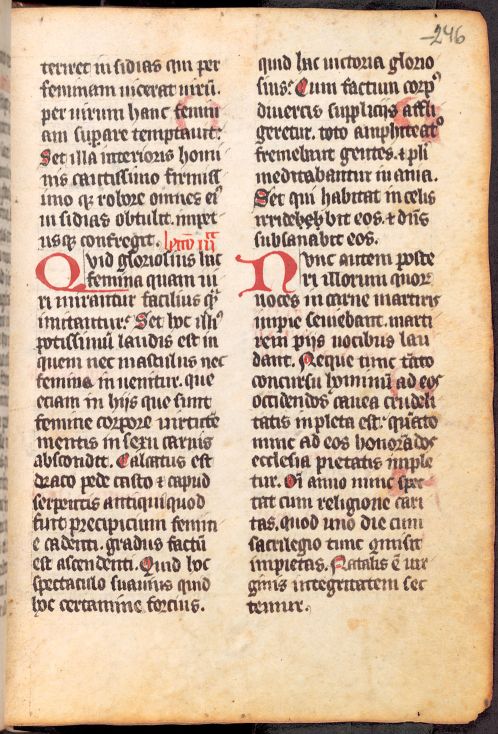 246
tereret in sidias qui per
feminam uicerat uirū.
per uirum hanc femin
am supare temptauit:
Set illa interioris homi
nis cautissimo firmiss
imo qȝ robore omnes eiꝰ
in sidias obtulit. impet
usqȝ confregit. lectio iiiª
Quid gloriosius hac
femina quam ui
ri mirantur facilius qͣ
imitantur: Set hoc illiꝰ
potissimū laudis est in
quem nec masculus nec
femina in uenitur. que
eciam in hijs que sunt
femine corpore uirtute
mentis in sexu carnis
abscondit. Calcatus est
draco pede casto ⁊ capud
serpentis antiqui quod
fuit precipicium femin
e cadenti. gradus factū
est ascendenti. Quid hoc
spectaculo suauius quid
hoc certamine forcius.
quid hac uictoria glorio
sius: Cum factium corpꝰ
diuercis supplicijs affli
geretur. toto amphiteatꝰ
fremebant gentes. ⁊ pli
meditabantur in ania.
Set qui habitat in celis
irridebat eos. ⁊ dn̄s
subsanabit eos.
Nunc autem poste
ri illorum quor
uoces in carne martiris
impie seuiebant. marti
rem pijs uocibus lau
dant. Neque tunc tāto
concursu hominū ad eos
occidendos cauea crudeli
tatis inpleta est: quāto
nunc ad eos honorādos
ecclesia pietatis imple
tur. Oī anno nunc spec
tat cum religione cari
tas. quod uno die cum
sacrilegio tunc ꝯmisit
impietas. Natalis ē uir
ginis integritatem sec
temur.